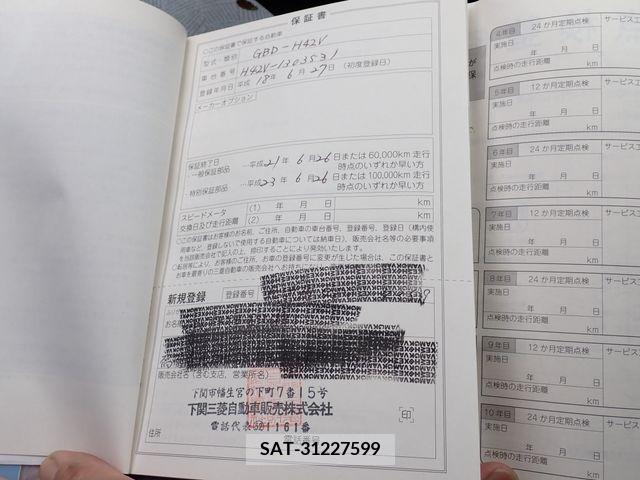 保証書
◯この保証書で保証する自動車
型式・類別 GBD-H42V
車台番号 H42V-1303531
登録年月日 平成 18年 6月 27日 (初度登録日)
メーカーオプション
保証終了日
一般保証部品 …平成21年 6月26日または60,000km走行
時点のいずれか早い方
特別保証部品 …平成23年 6月26日または100,000km走行
時点のいずれか早い方
スピードメータ (1) 年 月 日 km
交換日及び走行距離 (2) 年 月 日 km
◯この保証書はお客様のお名前、ご住所、自動車の車台番号、登録番号、登録日(構内使
用車など、登録しないで使用する自動車については納車日)、販売会社名等の必要事項
を当該販売会社で記入の上、捺印することにより発効いたします。
◯転居等により、お客様のご住所、お車の登録番号に変更が生じた場合は、この保証書と
お車を最寄りの三菱自動車の販売会社へお持ち
新規登録 登録番号
お名
販売会社名(含む支店、営業所名)
下関市幡生宮の下町7番15号
下関三菱自動車販売株式会社
電話代表 161番
住所 電話番号
印
SAT-31227599
4年目 24か月定期点検 サービスエ
実施日
年 月 日
点検時の走行距離 km
5年目 12か月定期点検 サービスエ
実施日
年 月 日
点検時の走行距離 km
6年目 24か月定期点検 サービスエ
実施日
年 月 日
点検時の走行距離 km
7年目 12か月定期点検 サービス
実施日
年 月 日
点検時の走行距離 km
8年目 24か月定期点検 サービス
実施日
年 月 日
点検時の走行距離 km
9年目 12か月定期点検 サービス
実施日
年 月 日
点検時の走行距離 km
10年目 24か月定期点検 サービス
実施日
年 月 日